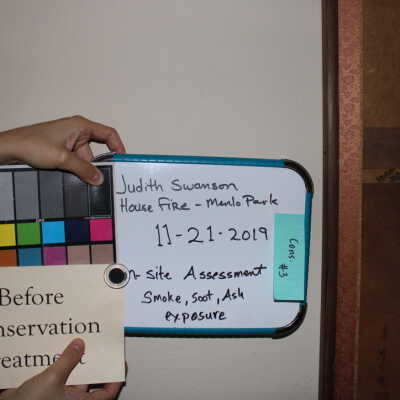 Judith Swanson
House Fire - Menlo Park
11-21-2019
n-site Assessment
Smoke, Soot, Ash
exposure
Cons.
#3
Before
nservation
reatmen